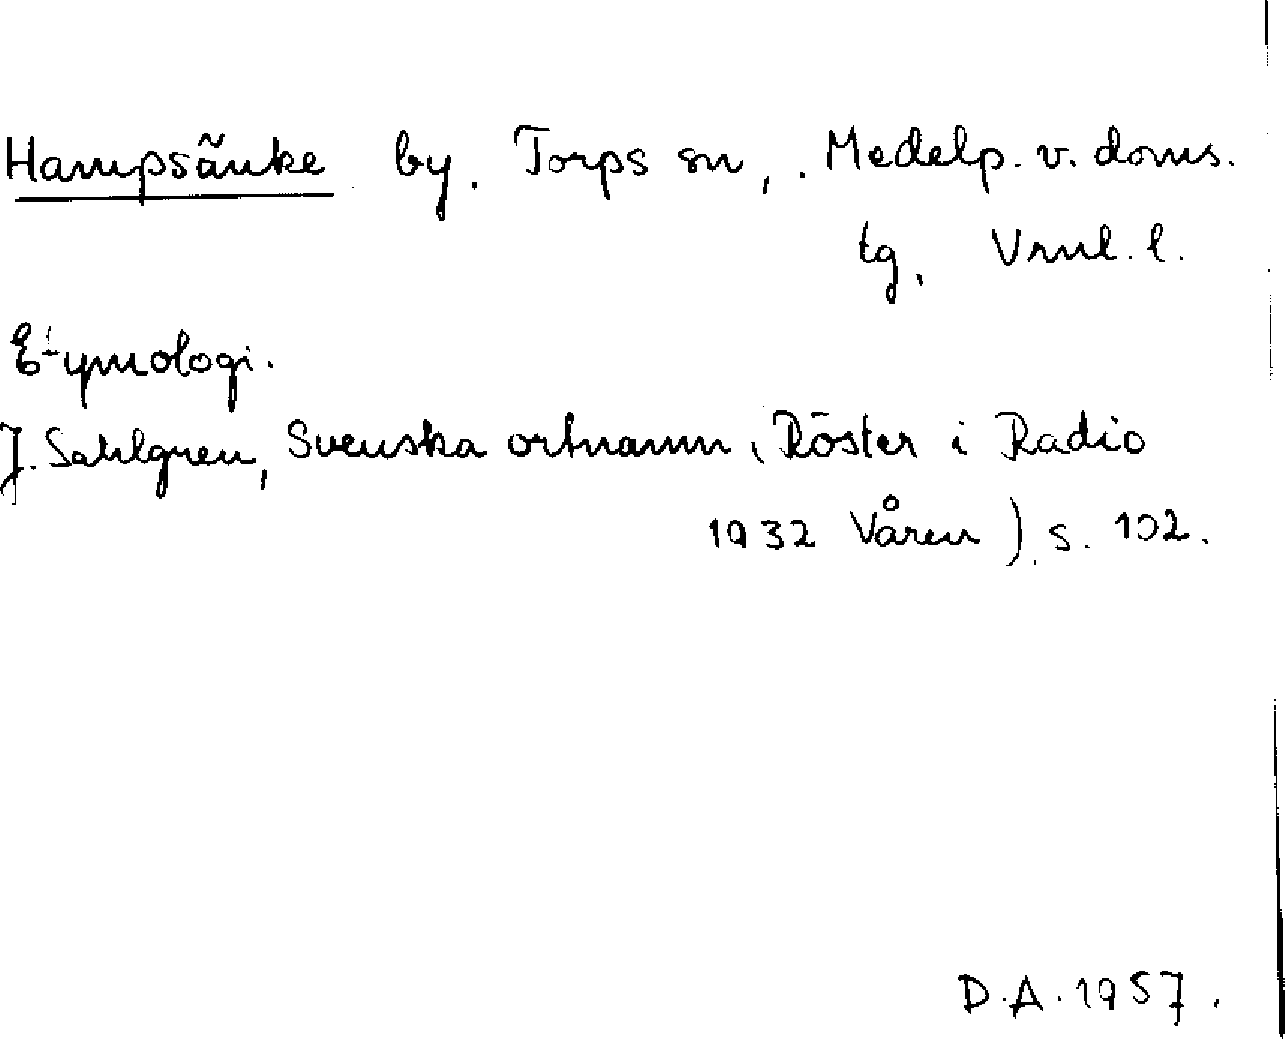 Hampsänke by. Torps sn, . Medelp. v. doms.
tg, Vrnl. l.
Etymologi.
J. Sahlgren, Svenska ortnamn (Röster i Radio
1932 Våren), s. 102.
D.A. 1957.